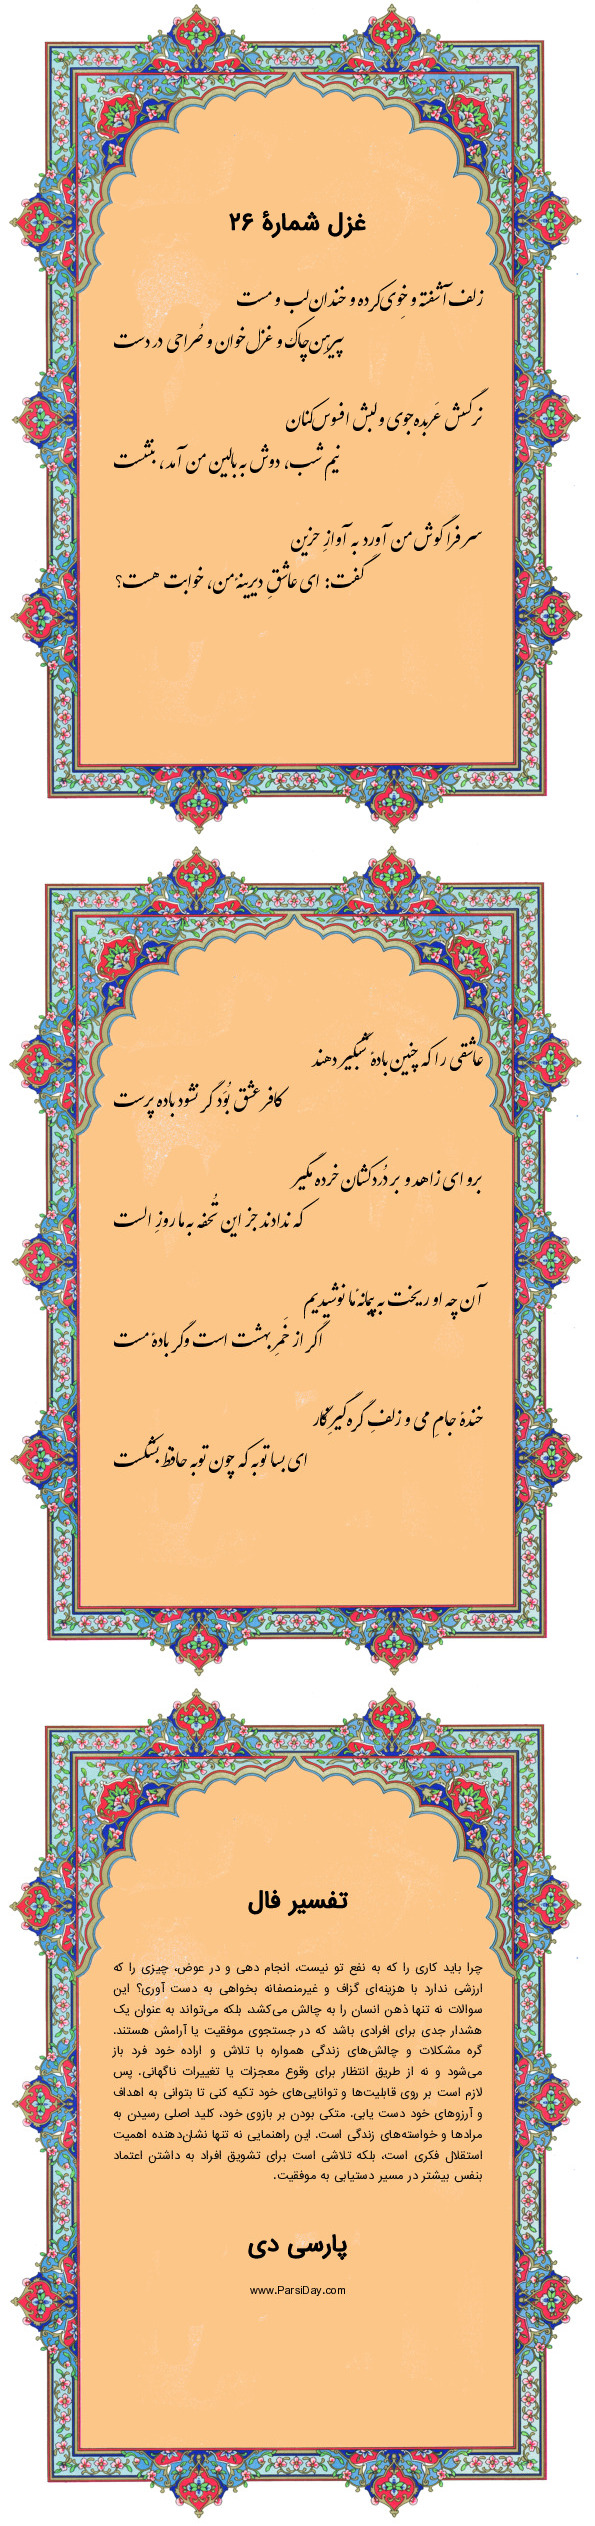 غزل شمارهٔ ۲۶
زلف آشفته و خِوی‌کرده و خندان‌لب و مست
پیرهن‌چاک و غزل‌خوان و صُراحی در دست
نرگسش عَربده‌جوی و لبش افسوس‌کنان
نیم شب، دوش به بالین من آمد، بنشست
سر فرا گوش من آورد به آوازِ حزین
گفت: ای عاشقِ دیرینهٔ من، خوابت هست؟
عاشقی را که چنین بادهٔ شبگیر دهند
کافر عشق بُوَد گر نشود باده پرست
برو ای زاهد و بر دُردکشان خرده مگیر
که ندادند جز این تُحفه به ما روزِ الست
آن چه او ریخت به پیمانهٔ ما نوشیدیم
اگر از خَمرِ بهشت است وگر بادهٔ مست
خندهٔ جامِ می و زلفِ گره‌گیرِ نگار
ای بسا توبه که چون توبه حافظ بشکست
تفسیر فال
چرا باید کاری را که به نفع تو نیست، انجام دهی و در عوض، چیزی را که
ارزشی ندارد با هزینه‌ای گزاف و غیرمنصفانه بخواهی به دست آوری؟ این
سوالات نه تنها ذهن انسان را به چالش می‌کشد، بلکه می‌تواند به عنوان یک
هشدار جدی برای افرادی باشد که در جستجوی موفقیت یا آرامش هستند.
گره مشکلات و چالش‌های زندگی همواره با تلاش و اراده خود فرد باز
می‌شود و نه از طریق انتظار برای وقوع معجزات یا تغییرات ناگهانی. پس
لازم است بر روی قابلیت‌ها و توانایی‌های خود تکیه کنی تا بتوانی به اهداف
و آرزوهای خود دست یابی. متکی بودن بر بازوی خود، کلید اصلی رسیدن به
مرادها و خواسته‌های زندگی است. این راهنمایی نه تنها نشان‌دهنده اهمیت
استقلال فکری است، بلکه تلاشی است برای تشویق افراد به داشتن اعتماد
بنفس بیشتر در مسیر دستیابی به موفقیت.
پارسی دی
www.ParsiDay.com